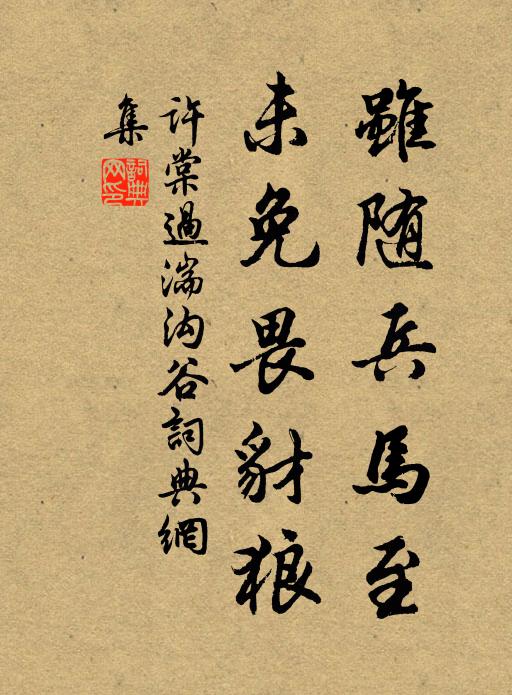 雖随兵馬至
未免畏豺狼
許棠過湍沟谷詞典網
集
詞典网印